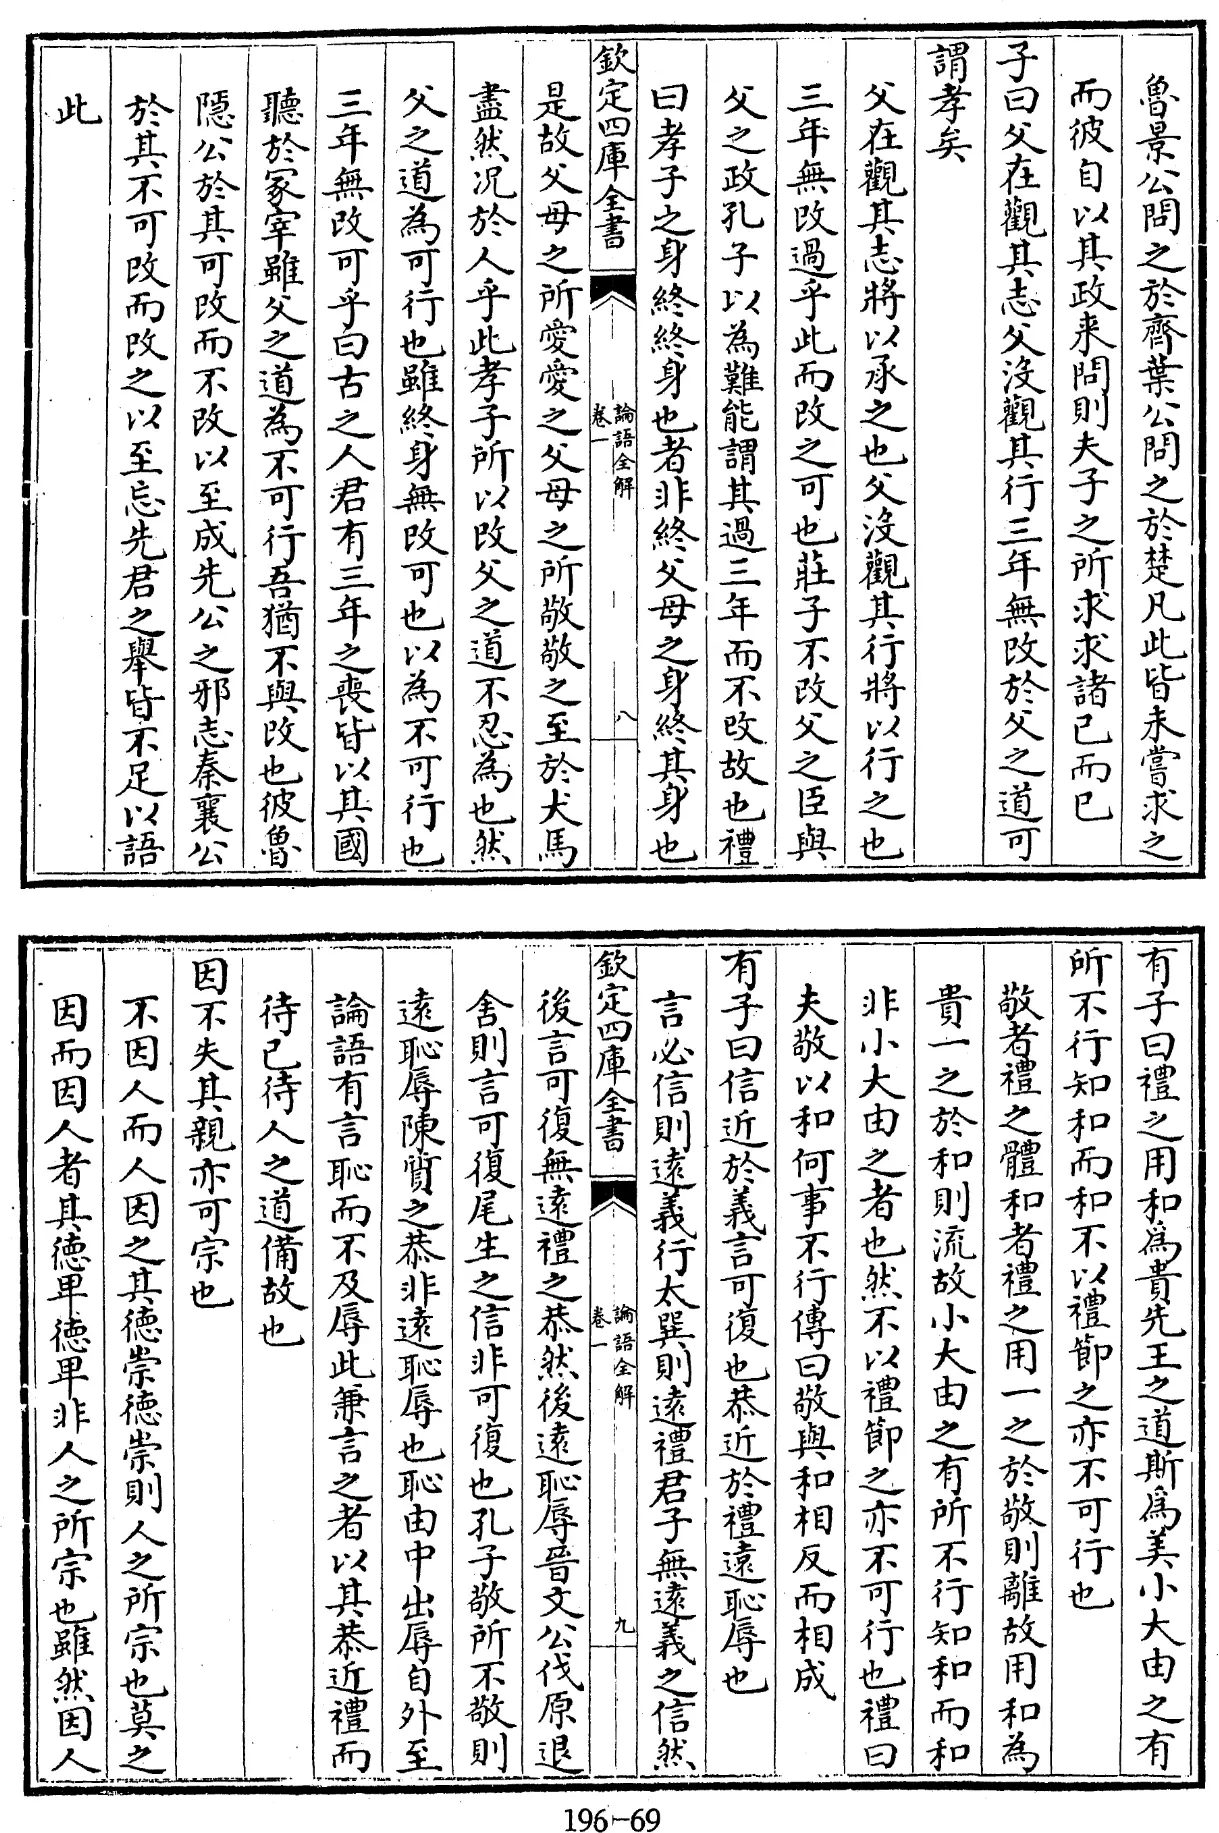 魯景公問之於齊葉公問之於楚凡此皆未嘗求之
而彼自以其政来問則夫子之所求求諸已而已
子曰父在觀其志父沒觀其行三年無改於父之道可
謂孝矣
父在觀其志將以承之也父沒觀其行將以行之也
三年無改過乎此而改之可也莊子不改父之臣與
父之政孔子以為難能謂其過三年而不改故也禮
曰孝子之身終終身也者非終父母之身終其身也
欽定四庫全書
論語全解
卷一
八
是故父母之所愛愛之父母之所敬敬之至於犬馬
盡然況於人乎此孝子所以改父之道不忍為也然
父之道為可行也雖終身無改可也以為不可行也
三年無改可乎曰古之人君有三年之喪皆以其國
聽於冢宰雖父之道為不可行吾猶不與改也彼魯
隱公於其可改而不改以至成先公之邪志秦襄公
於其不可改而改之以至忘先君之舉皆不足以語
此
有子曰禮之用和爲貴先王之道斯爲美小大由之有
所不行知和而和不以禮節之亦不可行也
敬者禮之體和者禮之用一之於敬則離故用和為
貴一之於和則流故小大由之有所不行知和而和
非小大由之者也然不以禮節之亦不可行也禮曰
夫敬以和何事不行傳曰敬與和相反而相成
有子曰信近於義言可復也恭近於禮遠恥辱也
言必信則遠義行太巽則遠禮君子無遠義之信然
欽定四庫全書
論語全解
卷一
九
後言可復無遠禮之恭然後遠恥辱晉文公伐原退
舍則言可復尾生之信非可復也孔子敬所不敬則
遠恥辱陳質之恭非遠恥辱也恥由中出辱自外至
論語有言恥而不及辱此兼言之者以其恭近禮而
待已待人之道備故也
因不失其親亦可宗也
不因人而人因之其德崇德崇則人之所宗也莫之
因而因人者其德卑德卑非人之所宗也雖然因人
196-69